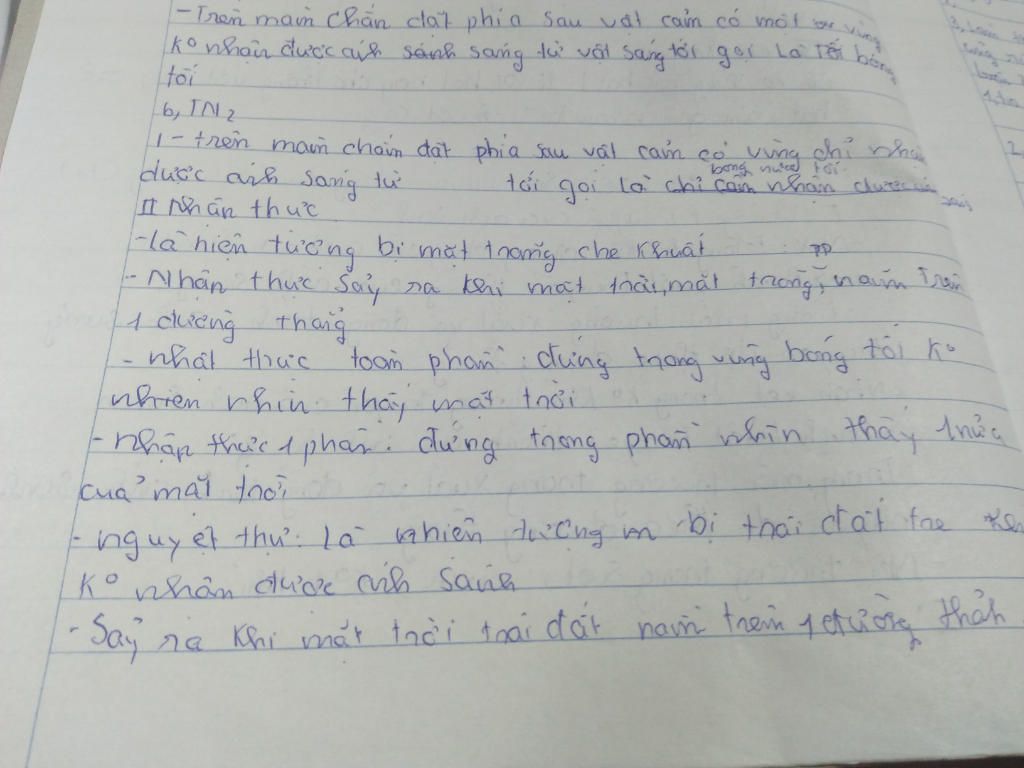 - Trên màn chắn đặt phía sau vật cản có một vùng
K° nhận được ánh sánh sang từ vật sang tới gọi là Tối bóng
tối
b, TN2
1 - trên màn chắn đặt phía sau vật cản có vùng chỉ nhận
bong nửa tối
được ánh sang từ tới gọi là chỉ cản nhận được
II Nhân thực
- là hiện tượng bị mặt trang che khuất
- Nhận thực sảy ra khi mặt trời, mặt trong, nam Tren
1 đường thăng
- nhật thực toàn phần: đứng trong vùng bóng tối K°
nhiên nhìn thấy mặt trời
- nhận thực 1 phần. đứng trong phần nhìn thấy 1 nửa
của mặt trời
- nguyệt thự: Là nhiên tượng m bị trái đất
K° nhân được ánh sánh
- Sảy ra khi mặt trời trái đất nam trem 1 đường thản